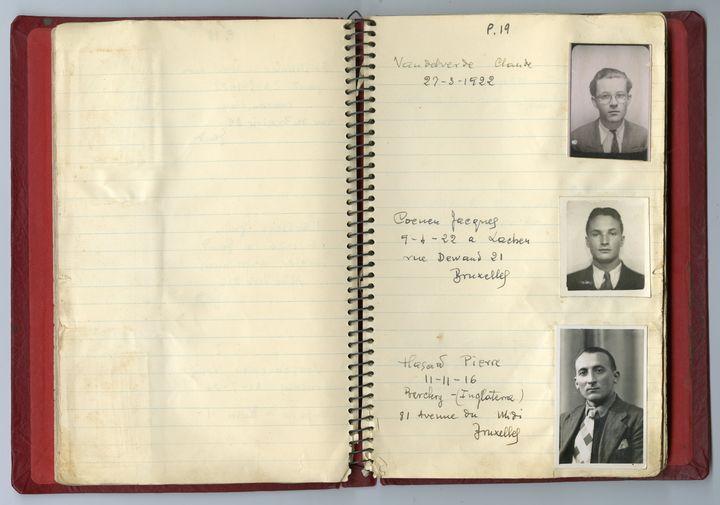 P.19
Vandelverde Claude
27-3-1922
Coenen Jacques
9-4-22 a Laeken
rue Dewand 21
Bruxelles
Hasard Pierre
11-11-16
(Inglaterra)
81 Avenue du Midi
Bruxelles